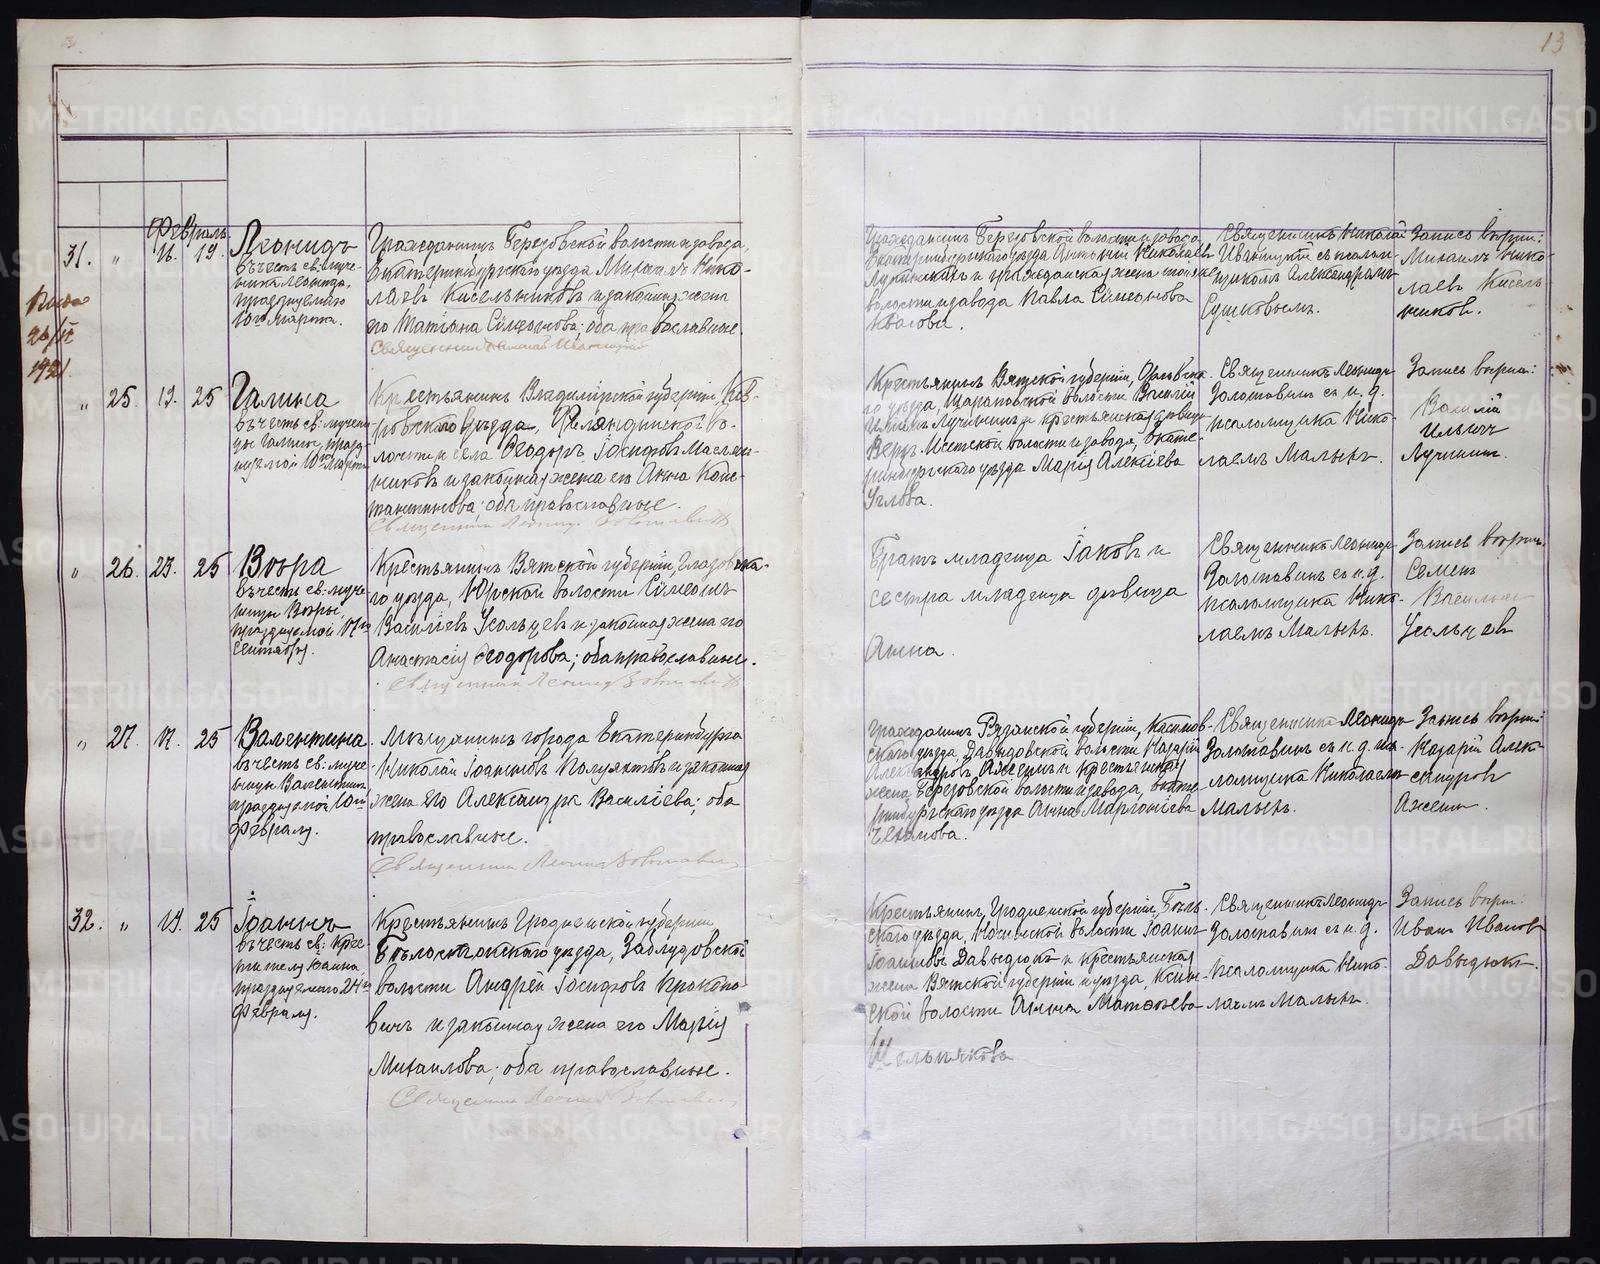 13
Февраль
31. " 16. 19. Леонидъ
въ честь св: муче-
ника Леонида,
празднуемаго
10го марта.
Гражданинъ Березовской волости и завода,
Екатеринбургскаго уезда Михаилъ Нико-
лаевъ Кисельниковъ и законная жена
его Татiана Сѵмеонова; оба православные.
Священникъ Николай Иваницкiй
Гражданинъ Березовской волости и завода
Екатеринбургскаго уезда Антонiй Николаевъ
и гражданская жена той же
волости и завода Павла Сѵмеонова
Квасова.
Священникъ Николай
Иваницкiй съ псалом-
щикомъ Александромъ
Сушковымъ.
Запись верна:
Михаилъ Нико-
лаевъ Кисель
никовъ.
26/II
1921
" 25. 19. 25 Галина
въ честь св: мучени-
цы Галины, празд-
нуемой 10го марта
Крестьянинъ Владимiрской губернiи, Ков-
ровскаго уезда, Филяндинской во-
лости и села Ѳеодоръ Iосифовъ Маслен-
никовъ и законная жена его Анна Конс-
тантинова; оба православные.
Священникъ Леонидъ Золотавинъ
Крестьянинъ Вятской губернiи, Орловска-
го уезда, волости Василiй
Ильинъ Лучининъ и крестьянская девица
Верхъ-Исетской волости и завода, Екате-
ринбургскаго уезда Марiя Алексiева
Углова.
Священникъ Леонидъ
Золотавинъ съ и. д.
псаломщика Нико-
лаемъ Малыхъ.
Запись верна:
Василiй
Ильичъ
Лучинин.
" 26. 23. 25 Вера
въ честь св: муче-
ницы Веры,
празднуемой 17го
сентября.
Крестьянинъ Вятской губернiи, Глазовска-
го уезда, Юрской волости Сѵмеонъ
Василiевъ Усольцевъ и законная жена его
Анастасiя Ѳеодорова; оба православные.
Священникъ Леонидъ Золотавинъ
Братъ младенца Iаковъ и
сестра младенца девица
Анна.
Священникъ Леонидъ
Золотавинъ съ и. д.
псаломщика Нико-
лаемъ Малыхъ.
Запись верна:
Семенъ
Васильев
Усольцев
" 27. 17. 25 Валентина
въ честь св: муче-
ницы Валентины
празднуемой 10го
февраля.
Мещанинъ города Екатеринбурга
Николай Iоанновъ Полуяктовъ и законная
жена его Александра Василiева; оба
православные.
Священникъ Леонидъ Золотавинъ
Гражданинъ Рязанской губернiи, Касимов-
скаго уезда, Давыдовской волости Назарiй
Александровъ Ажени и крестьянская
жена Березовской волости и завода, Екате-
ринбургскаго уезда Анна
Чеканова.
Священникъ Леонидъ
Золотавинъ съ и. д. пса-
ломщика Николаемъ
Малыхъ.
Запись верна:
Назарiй Алек-
сандров
Ажени.
32. " 14. 25 Iоаннъ
въ честь св: Крес-
тителя Iоанна,
празднуемаго 24го
февраля.
Крестьянинъ Гродненской губернiи
Белостокскаго уезда, Заблудовской
волости Андрей Iосифовъ Прокопо-
вичъ и законная жена его Марiя
Михаилова; оба православные.
Священникъ Леонидъ Золотавинъ
Крестьянинъ Гродненской губернiи, Бель-
скаго уезда, волости Iоаннъ
Iоанновъ Давыдюкъ и крестьянская
жена Вятской губернiи и уезда,
ской волости Анна Матѳеева
Шельпякова
Священникъ Леонидъ
Золотавинъ съ и. д.
псаломщика Нико-
лаемъ Малыхъ.
Запись верна:
Иван Иванов
Давыдюкъ.
METRIKI.GASO-URAL.RU